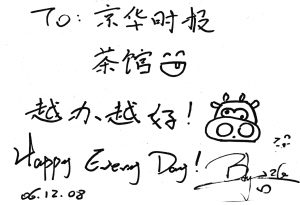 TO: 京华时报
茶馆
越办、越好!
Happy Every Day!
06.12.08